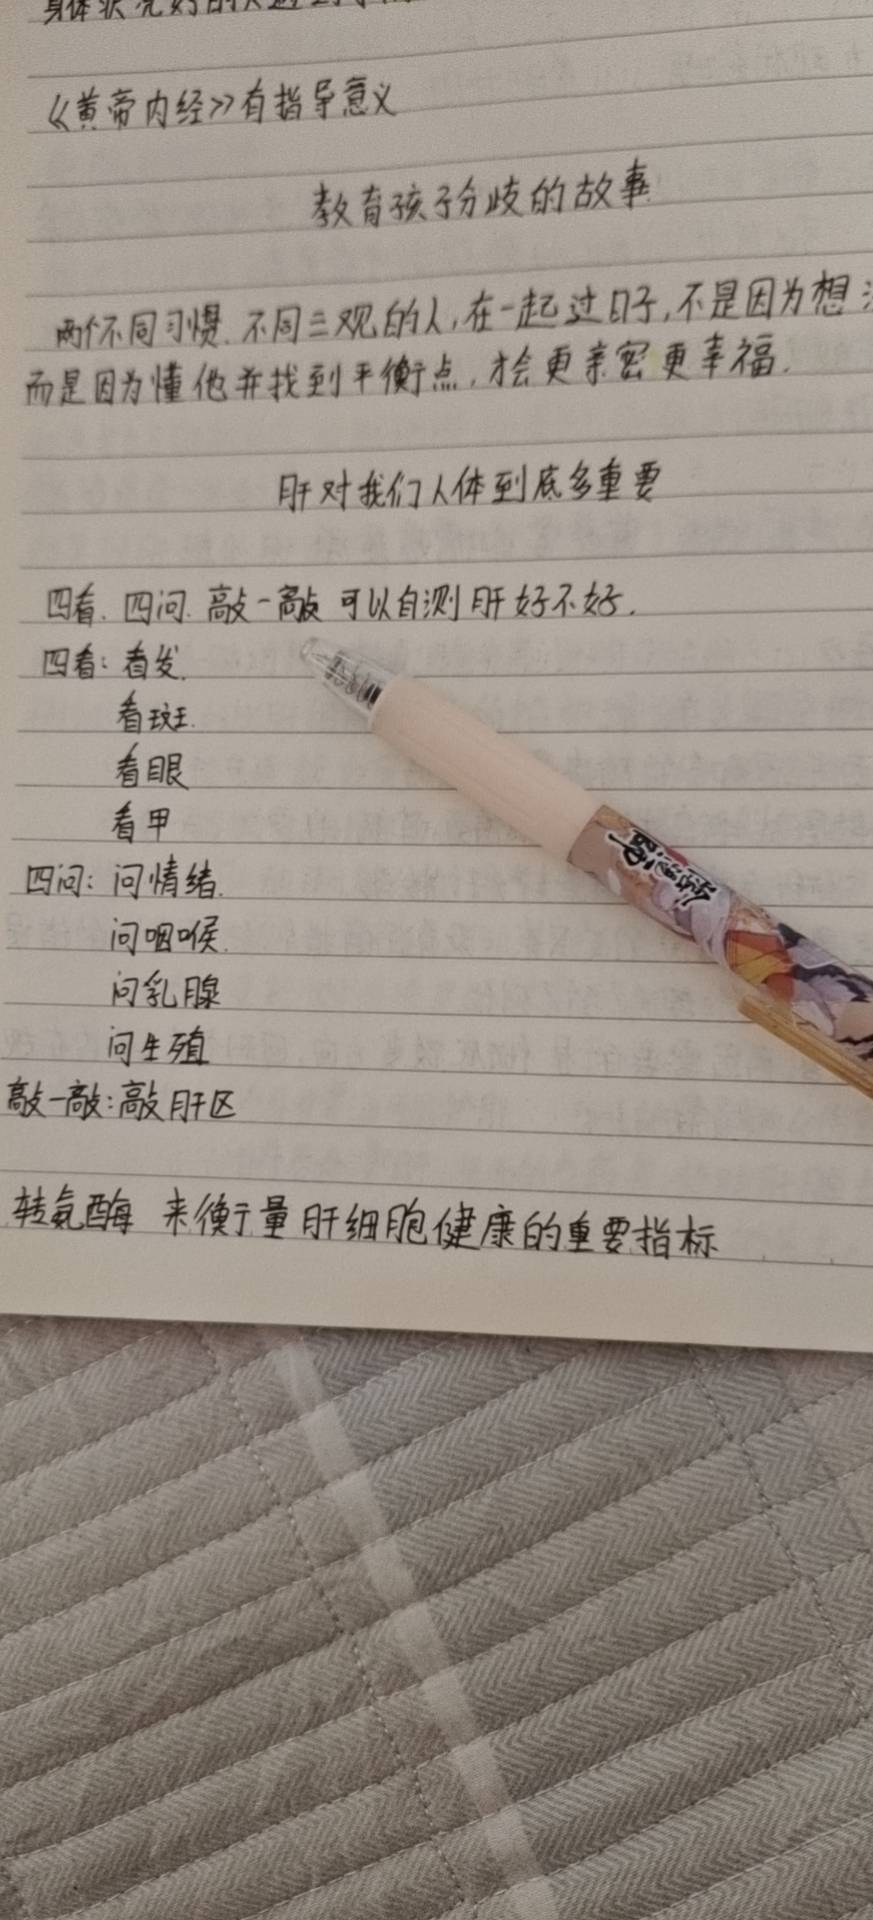 身体状况好的人
《黄帝内经》有指导意义
教育孩子分歧的故事
两个不同习惯.不同三观的人,在一起过日子,不是因为想
而是因为懂他并找到平衡点,才会更亲密更幸福.
肝对我们人体到底多重要
四看.四问.敲一敲 可以自测肝好不好.
四看:看发.
看斑.
看眼
看甲
四问:问情绪.
问咽喉.
问乳腺
问生殖
敲一敲:敲肝区
转氨酶 来衡量肝细胞健康的重要指标